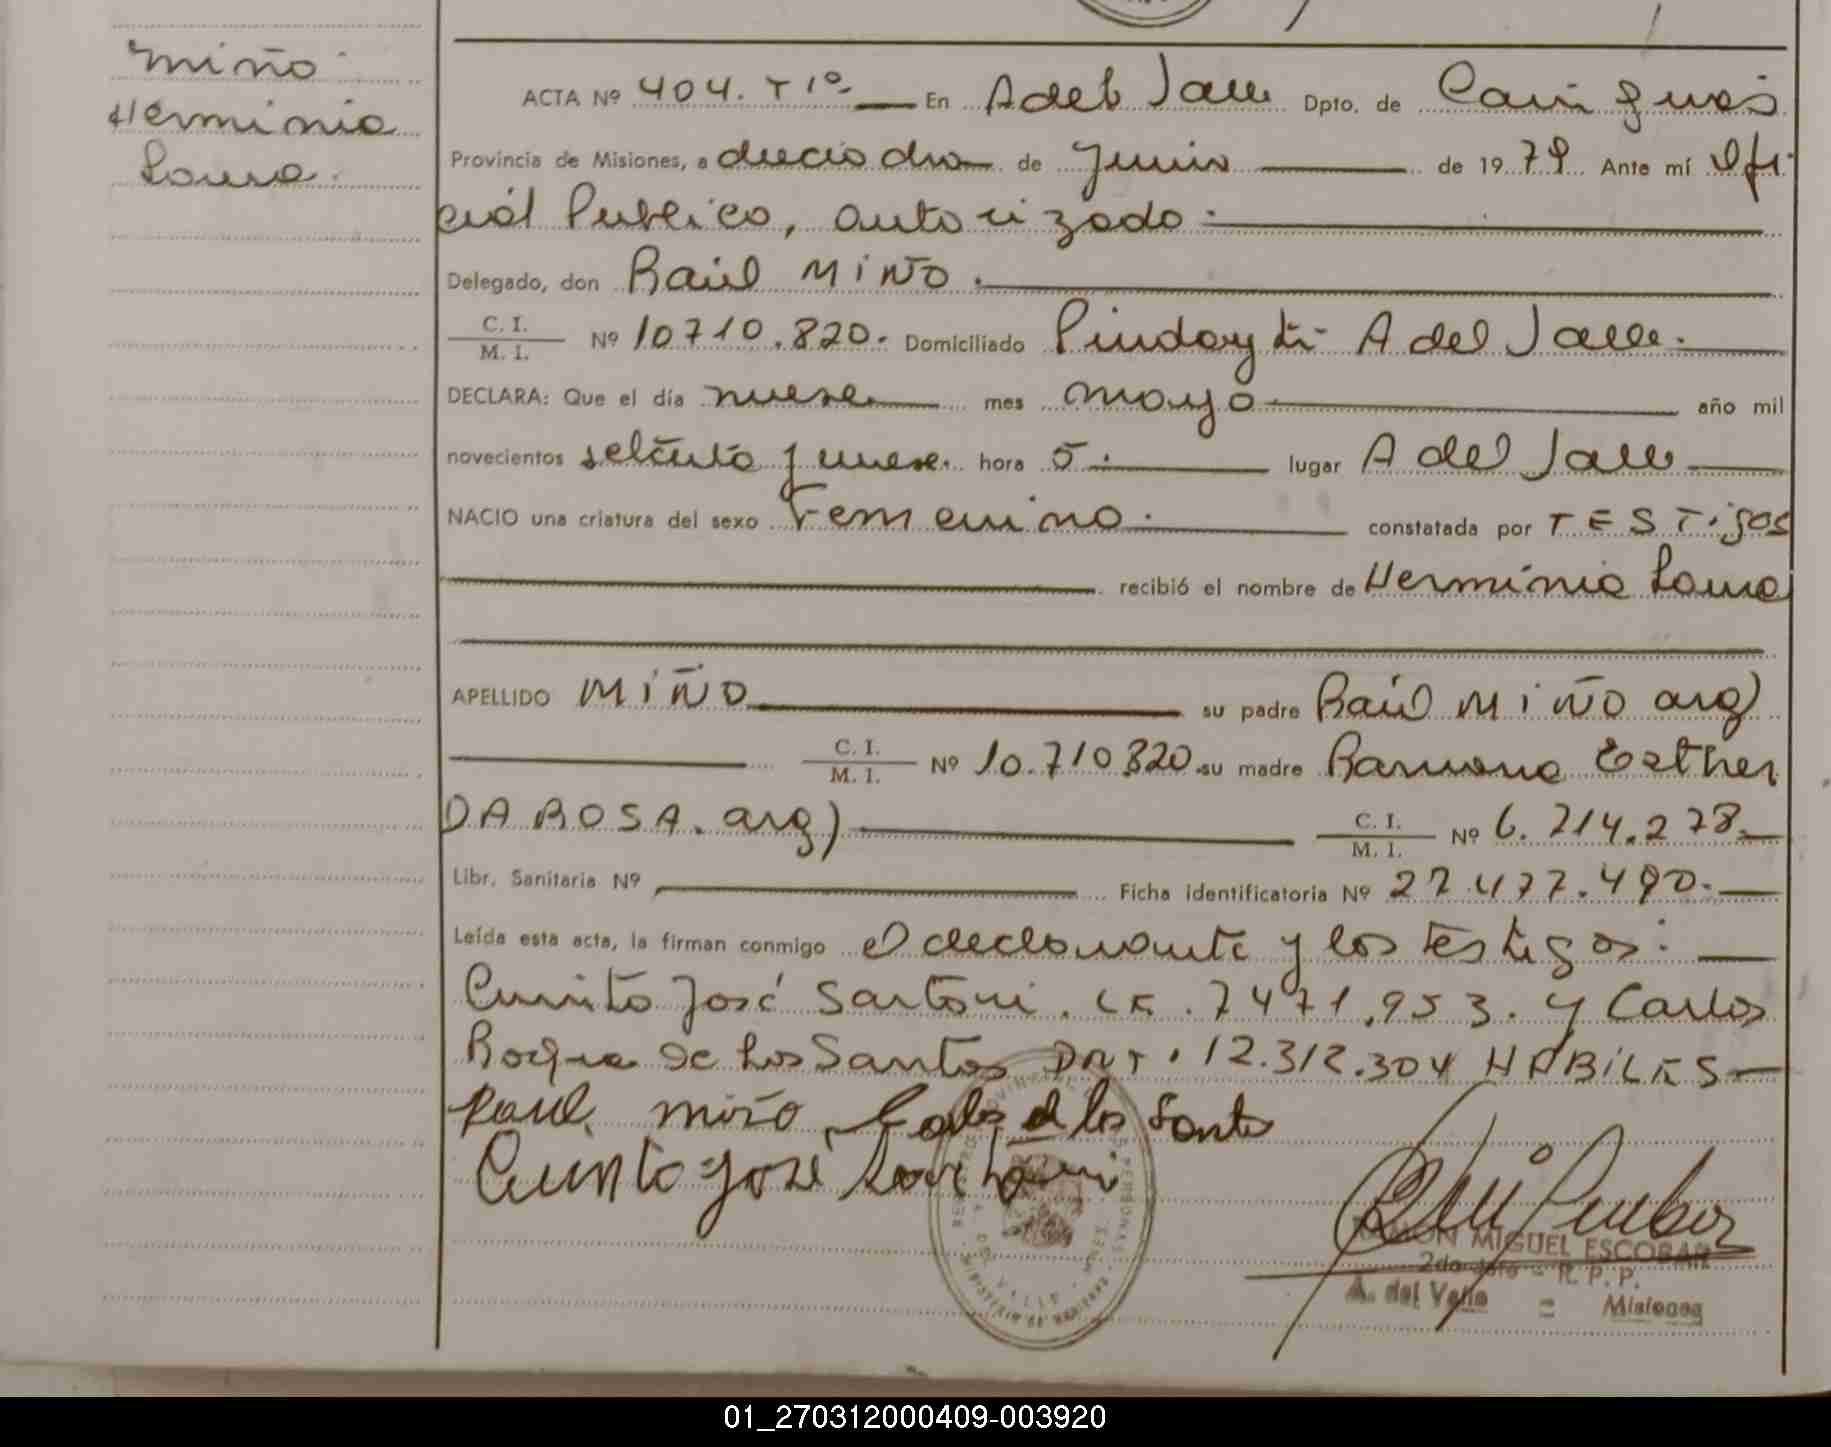 Miño
Herminia
ACTA Nº 404. T 1º En A del Valle Dpto. de Cainguas
Provincia de Misiones, a dieciocho de Junio de 1979 Ante mí Ofi
cial Publico, autorizado.
Delegado, don Raúl MIÑO.
C. I.
M. I. Nº 10710.820. Domiciliado Pindayti- A del Valle.
DECLARA: Que el día nueve mes mayo año mil
novecientos setenta y nueve. hora 5. lugar A del Valle
NACIO una criatura del sexo Femenino. constatada por TESTigos
recibió el nombre de Herminia
APELLIDO MIÑO su padre Raúl MIÑO arg)
C. I.
M. I. Nº 10.710820 su madre Ramona Esther
DA ROSA. arg) C. I.
M. I. Nº 6.714.278.
Libr. Sanitaria Nº Ficha identificatoria Nº 27.477.490.
Leída esta acta, la firman conmigo el declarante y los testigos:
José Sartori. LE. 7471.953. y Carlos
Roque de Los Santos DNI. 12.312.304 HABILES
Raul. miño Carlos de los Santos
José Sartori
RAMON MIGUEL ESCOBAR
2do Jefe - R. P. P.
A. del Valle = Misiones
01_270312000409-003920